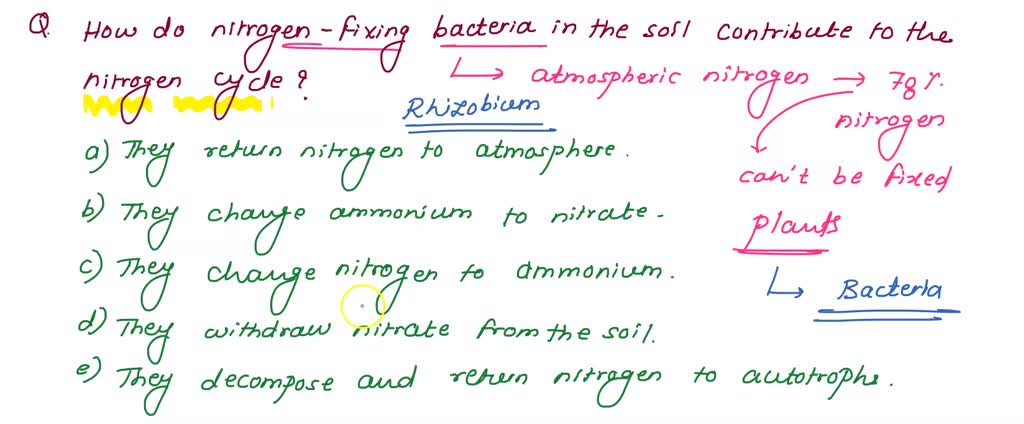 Q. How do nitrogen-fixing bacteria in the soil contribute to the
nitrogen cycle?
↳ atmospheric nitrogen → 78%.
nitrogen
can't be fixed
Plants
↳ Bacteria
Rhizobium
a) They return nitrogen to atmosphere.
b) They change ammonium to nitrate.
c) They change nitrogen to ammonium.
d) They withdraw nitrate from the soil.
e) They decompose and return nitrogen to autotrophs.